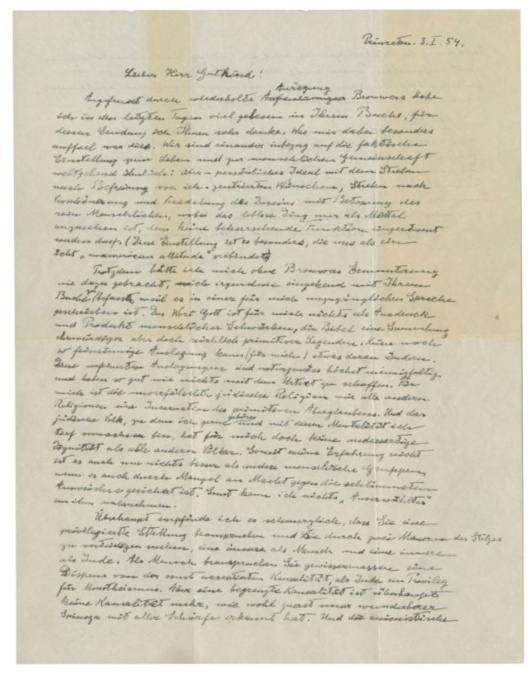 Princeton. 3. I. 54.
Lieber Herr Gutkind!
Anregung
Angefeuert durch wiederholte Brouwers habe
ich in den letzten Tagen viel gelesen in Ihrem Buche, für
dessen Sendung ich Ihnen sehr danke. Was mir dabei besonders
auffiel war dies. Wir sind einander inbezug auf die faktische
Einstellung zum Leben und zur menschlichen Gemeinschaft
weitgehend ähnlich: über-persönliches Ideal mit dem Streben
nach Befreiung von ich-zentrierten Wünschen, Streben nach
Verschönerung und Veredelung des Daseins mit Betonung des
rein Menschlichen, wobei das leblose Ding nur als Mittel
anzusehen ist, dem keine beherrschende Funktion eingeräumt
werden darf. (Diese Einstellung ist es besonders, die uns als ein
echt „unamerican attitude“ verbindet)
Trotzdem hätte ich mich ohne Brouwers Ermunterung
nie dazu gebracht, mich irgendwie eingehend mit Ihrem
Buche zu befassen, weil es in einer für mich unzugänglichen Sprache
geschrieben ist. Das Wort Gott ist für mich nichts als Ausdruck
und Produkt menschlicher Schwächen, die Bibel eine Sammlung
ehrwürdiger aber doch reichlich primitiver Legenden. Keine noch
so feinsinnige Auslegung kann (für mich) etwas daran ändern.
Diese verfeinerten Auslegungen sind naturgemäss höchst mannigfaltig
und haben so gut wie nichts mit dem Urtext zu schaffen. Für
mich ist die unverfälschte jüdische Religion wie alle anderen
Religionen eine Incarnation des primitiven Aberglaubens. Und das
jüdische Volk, zu dem ich gerne gehöre und mit dessen Mentalität ich
tief verwachsen bin, hat für mich doch keine andersartige
Dignität als alle anderen Völker. Soweit meine Erfahrung reicht
ist es auch um nichts besser als andere menschliche Gruppen
wenn es auch durch Mangel an Macht gegen die schlimmsten
Auswüchse gesichert ist. Sonst kann ich nichts „Auserwähltes“
an ihm wahrnehmen.
Überhaupt empfinde ich es schmerzlich, dass Sie eine
privilegierte Stellung beanspruchen und sie durch zwei Mauern des Stolzes
zu verteidigen suchen, eine äussere als Mensch und eine innere
als Jude. Als Mensch beanspruchen Sie gewissermassen einen
Dispens von der sonst acceptierten Kausalität, als Jude ein Privileg
für Monotheismus. Aber eine begrenzte Kausalität ist überhaupt
keine Kausalität mehr, wie wohl zuerst unser wunderbarer
Spinoza mit aller Schärfe erkannt hat. Und die animistische